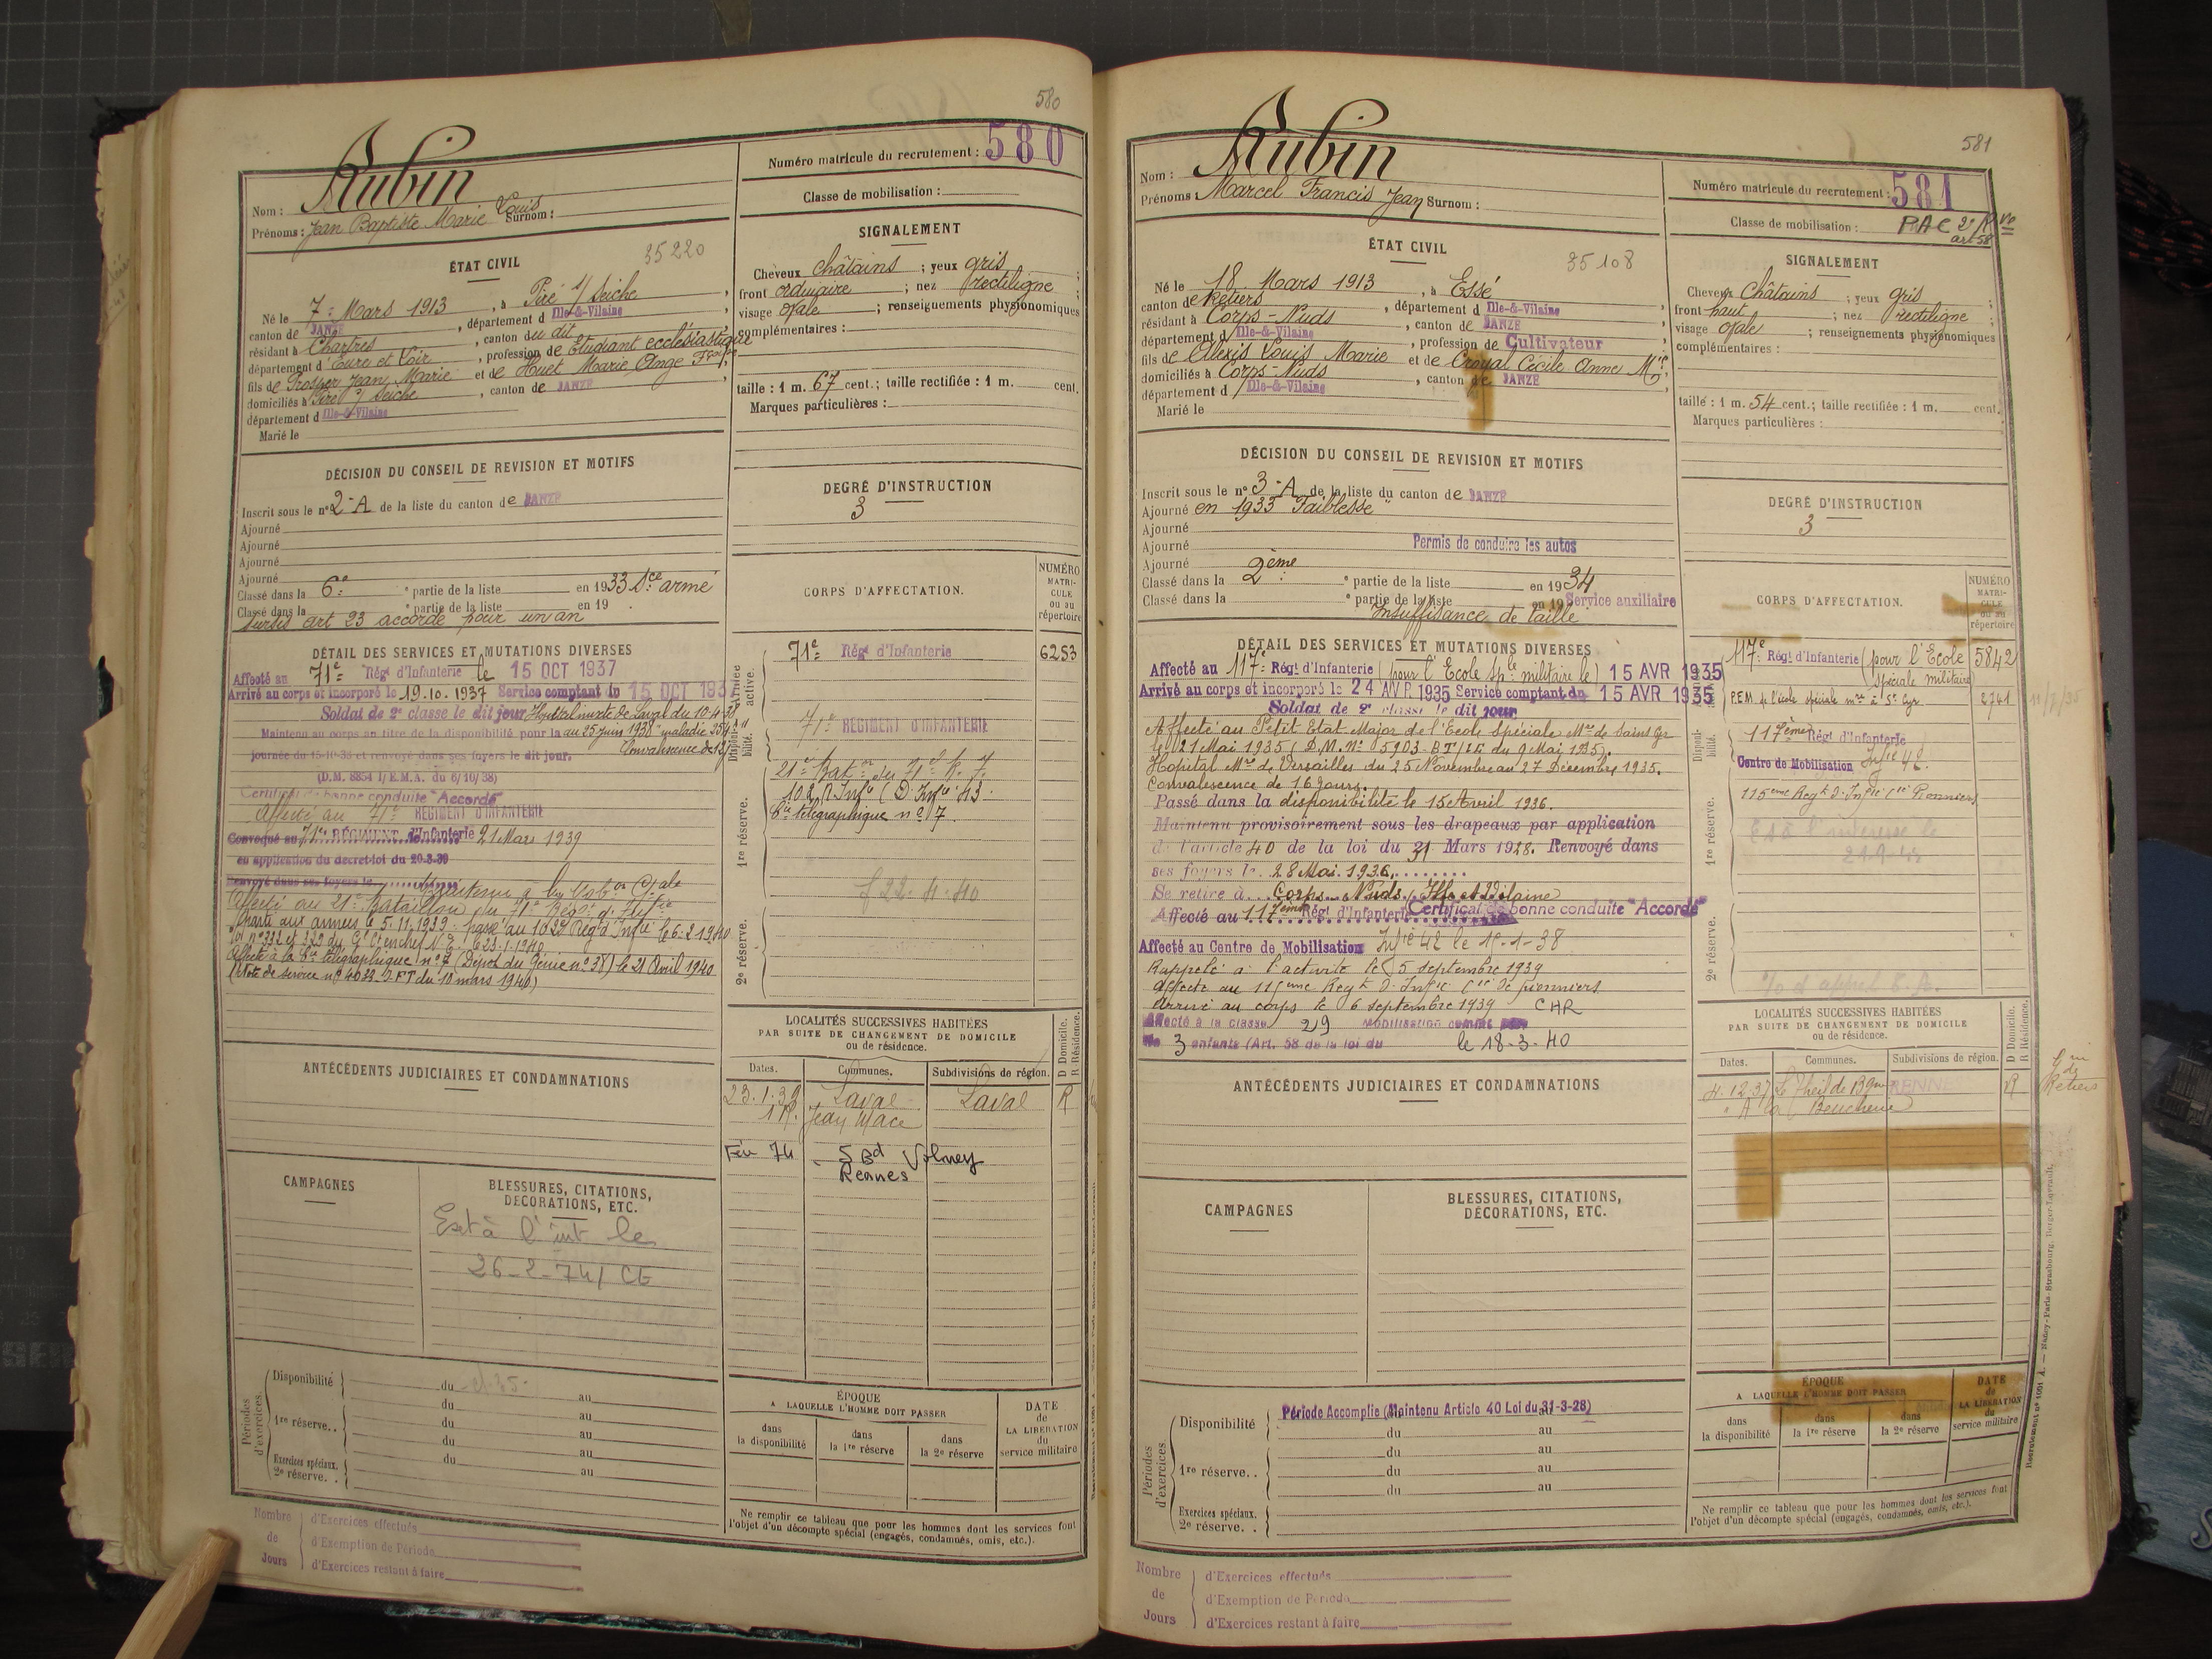 580
Aubin
Nom :
Prénoms : Jean Baptiste Marie Louis Surnom :
Numéro matricule du recrutement : 580
Classe de mobilisation :
ÉTAT CIVIL
35220
Né le 7 Mars 1913, à Piré s/ Seiche
canton de JANZÉ, département d Ille-&-Vilaine
résidant à Chartres, canton du dit
département d'Eure et Loir, profession de Etudiant ecclésiastique
fils de Prosper Jean Marie et de Huet Marie Ange Fçoise
domiciliés à Piré s/ Seiche, canton de JANZÉ
département d Ille-&-Vilaine
Marié le
SIGNALEMENT
Cheveux châtains ; yeux gris ;
front ordinaire ; nez rectiligne ;
visage ovale ; renseignements physionomiques
complémentaires :
taille : 1 m. 67 cent.; taille rectifiée : 1 m. cent.
Marques particulières :
DÉCISION DU CONSEIL DE REVISION ET MOTIFS
Inscrit sous le n° 2-A de la liste du canton de JANZÉ
Ajourné
Ajourné
Ajourné
Ajourné
Classé dans la 6e partie de la liste en 1933 Sce armé
Classé dans la partie de la liste en 19 .
Sursis art 23 accordé pour un an
DEGRÉ D'INSTRUCTION
3
DÉTAIL DES SERVICES ET MUTATIONS DIVERSES
Affecté au 71e Régt d'Infanterie le 15 OCT 1937
Arrivé au corps et incorporé le 19.10.1937 Service comptant du 15 OCT 193
Soldat de 2e classe le dit jour Hôpital mixte de Laval du 10-4-38
Maintenu au corps au titre de la disponibilité pour la au 25 juin 1938 maladie
Convalescence de
journée du 15-10-38 et renvoyé dans ses foyers le dit jour.
(D.M. 8854 1/E.M.A. du 6/10/38)
Certificat de bonne conduite "Accordé"
Affecté au 71e RÉGIMENT D'INFANTERIE
Convoqué au 71e RÉGIMENT d'Infanterie 21 Mars 1939
en application du decret-loi du 20-3-39
Renvoyé dans ses foyers le
Affecté au 21e Bataillon du 71e Régt d'Inftie
Parti aux armées le 5.11.1939 passé au 102e Rég d'Infie le 6-2-1940
Affecté à la 6e Cie télégraphique n° 7 (Dépôt du Génie n° 38) le 21 Avril 1940
(Note de service n° 4032-2 FT du 10 mars 1940)
CORPS D'AFFECTATION.
NUMÉRO MATRICULE ou au répertoire
71e Régt d'Infanterie 6253
71e RÉGIMENT D'INFANTERIE
21e Baton du 71e R.I.
102 R Infie (D. Infie 43
6e Cie télégraphique n° 7
f 22.4.40
Armée active.
Disponibilité.
1re réserve.
2e réserve.
LOCALITÉS SUCCESSIVES HABITÉES
PAR SUITE DE CHANGEMENT DE DOMICILE
ou de résidence.
D Domicile.
R Résidence.
Dates. Communes. Subdivisions de région.
23.1.39 Laval Laval R
1 R. Jean Macé
Fév 74 5 Bd Volney
Rennes
ANTÉCÉDENTS JUDICIAIRES ET CONDAMNATIONS
CAMPAGNES
BLESSURES, CITATIONS,
DÉCORATIONS, ETC.
Ext à l'int le
26-2-74/ CE
Périodes d'exercices.
Disponibilité du au
du au
1re réserve.. du au
du au
Exercices spéciaux. 2e réserve. . du au
ÉPOQUE
A LAQUELLE L'HOMME DOIT PASSER
dans la disponibilité
dans la 1re réserve
dans la 2e réserve
DATE de LA LIBÉRATION du service militaire
Ne remplir ce tableau que pour les hommes dont les services font
l'objet d'un décompte spécial (engagés, condamnés, omis, etc.).
Nombre de Jours
d'Exercices effectués
d'Exemption de Période
d'Exercices restant à faire
581
Aubin
Nom :
Prénoms : Marcel Francis Jean Surnom :
Numéro matricule du recrutement : 581
Classe de mobilisation : RAC 2e Rve
art 58
ÉTAT CIVIL
35108
Né le 18 Mars 1913, à Essé
canton de Retiers, département d Ille-&-Vilaine
résidant à Corps-Nuds, canton de JANZÉ
département d Ille-&-Vilaine, profession de Cultivateur
fils de Alexis Louis Marie et de Croyal Cécile Anne Mie
domiciliés à Corps-Nuds, canton de JANZÉ
département d Ille-&-Vilaine
Marié le
SIGNALEMENT
Cheveux Châtains ; yeux gris ;
front haut ; nez rectiligne ;
visage ovale ; renseignements physionomiques
complémentaires :
taille : 1 m. 54 cent.; taille rectifiée : 1 m. cent.
Marques particulières :
DÉCISION DU CONSEIL DE REVISION ET MOTIFS
Inscrit sous le n° 3-A de la liste du canton de JANZÉ
Ajourné en 1933 Faiblesse
Ajourné
Ajourné Permis de conduire les autos
Classé dans la 2ème partie de la liste en 1934
Classé dans la partie de la liste en 19 Service auxiliaire
Insuffisance de taille
DEGRÉ D'INSTRUCTION
3
DÉTAIL DES SERVICES ET MUTATIONS DIVERSES
Affecté au 117e Régt d'Infanterie (pour l'Ecole Sple militaire le) 15 AVR 1935
Arrivé au corps et incorporé le 24 AVR 1935 Service comptant du 15 AVR 1935
Soldat de 2e classe le dit jour
Affecté au Petit Etat Major de l'Ecole Spéciale Mre de Saint Cyr
le 21 Mai 1935 (D.M. N° 5903-BT/ du 9 Mai 1935).
Hôpital Mre de Versailles du 25 Novembre au 27 Décembre 1935.
Convalescence de 16 jours.
Passé dans la disponibilité le 15 Avril 1936.
Maintenu provisoirement sous les drapeaux par application
de l'article 40 de la loi du 31 Mars 1928. Renvoyé dans
ses foyers le 28 Mai 1936
Se retire à Corps-Nuds, Ille et Vilaine
Affecté au 117ème Régt d'Infanterie Certificat de bonne conduite "Accordé"
Affecté au Centre de Mobilisation Infie 42 le 15-1-38
Rappelé à l'activité le 5 septembre 1939
Affecté au 115ème Regt d'Infie Cie de pionniers
Arrivé au corps le 6 septembre 1939 CHR
Affecté à la classe 29 Mobilisation comme père
de 3 enfants (Art. 58 de la loi du le 18-3-40
CORPS D'AFFECTATION.
NUMÉRO MATRICULE ou au répertoire
117e Régt d'Infanterie (pour l'Ecole spéciale militaire) 5842
P.E.M. de l'école spéciale mre à St Cyr 2741
117ème Régt d'Infanterie
Centre de Mobilisation Infie 42
115ème Regt d'Infie Cie Pionniers
Disponibilité.
1re réserve.
2e réserve.
LOCALITÉS SUCCESSIVES HABITÉES
PAR SUITE DE CHANGEMENT DE DOMICILE
ou de résidence.
D Domicile.
R Résidence.
Dates. Communes. Subdivisions de région.
4.12.37 Le Theil de Bgne RENNES R
Retiers
ANTÉCÉDENTS JUDICIAIRES ET CONDAMNATIONS
CAMPAGNES
BLESSURES, CITATIONS,
DÉCORATIONS, ETC.
Périodes d'exercices.
Disponibilité Période Accomplie (Maintenu Article 40 Loi du 31-3-28)
du au
du au
1re réserve.. du au
du au
Exercices spéciaux. 2e réserve. .
ÉPOQUE
A LAQUELLE L'HOMME DOIT PASSER
dans la disponibilité
dans la 1re réserve
dans la 2e réserve
DATE de LA LIBÉRATION du service militaire
Ne remplir ce tableau que pour les hommes dont les services font
l'objet d'un décompte spécial (engagés, condamnés, omis, etc.).
Nombre de Jours
d'Exercices effectués
d'Exemption de Période
d'Exercices restant à faire